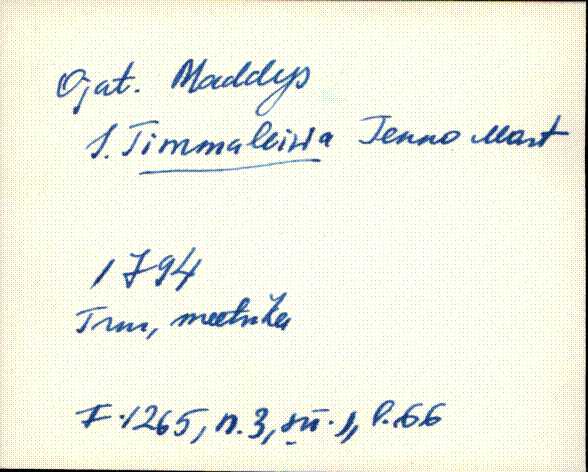 Ojat. Maddys
J. Timmaleiwa Jenno Mart
1794
Trm, meetrika
F. 1265, n. 3, sü. 1, l. 66